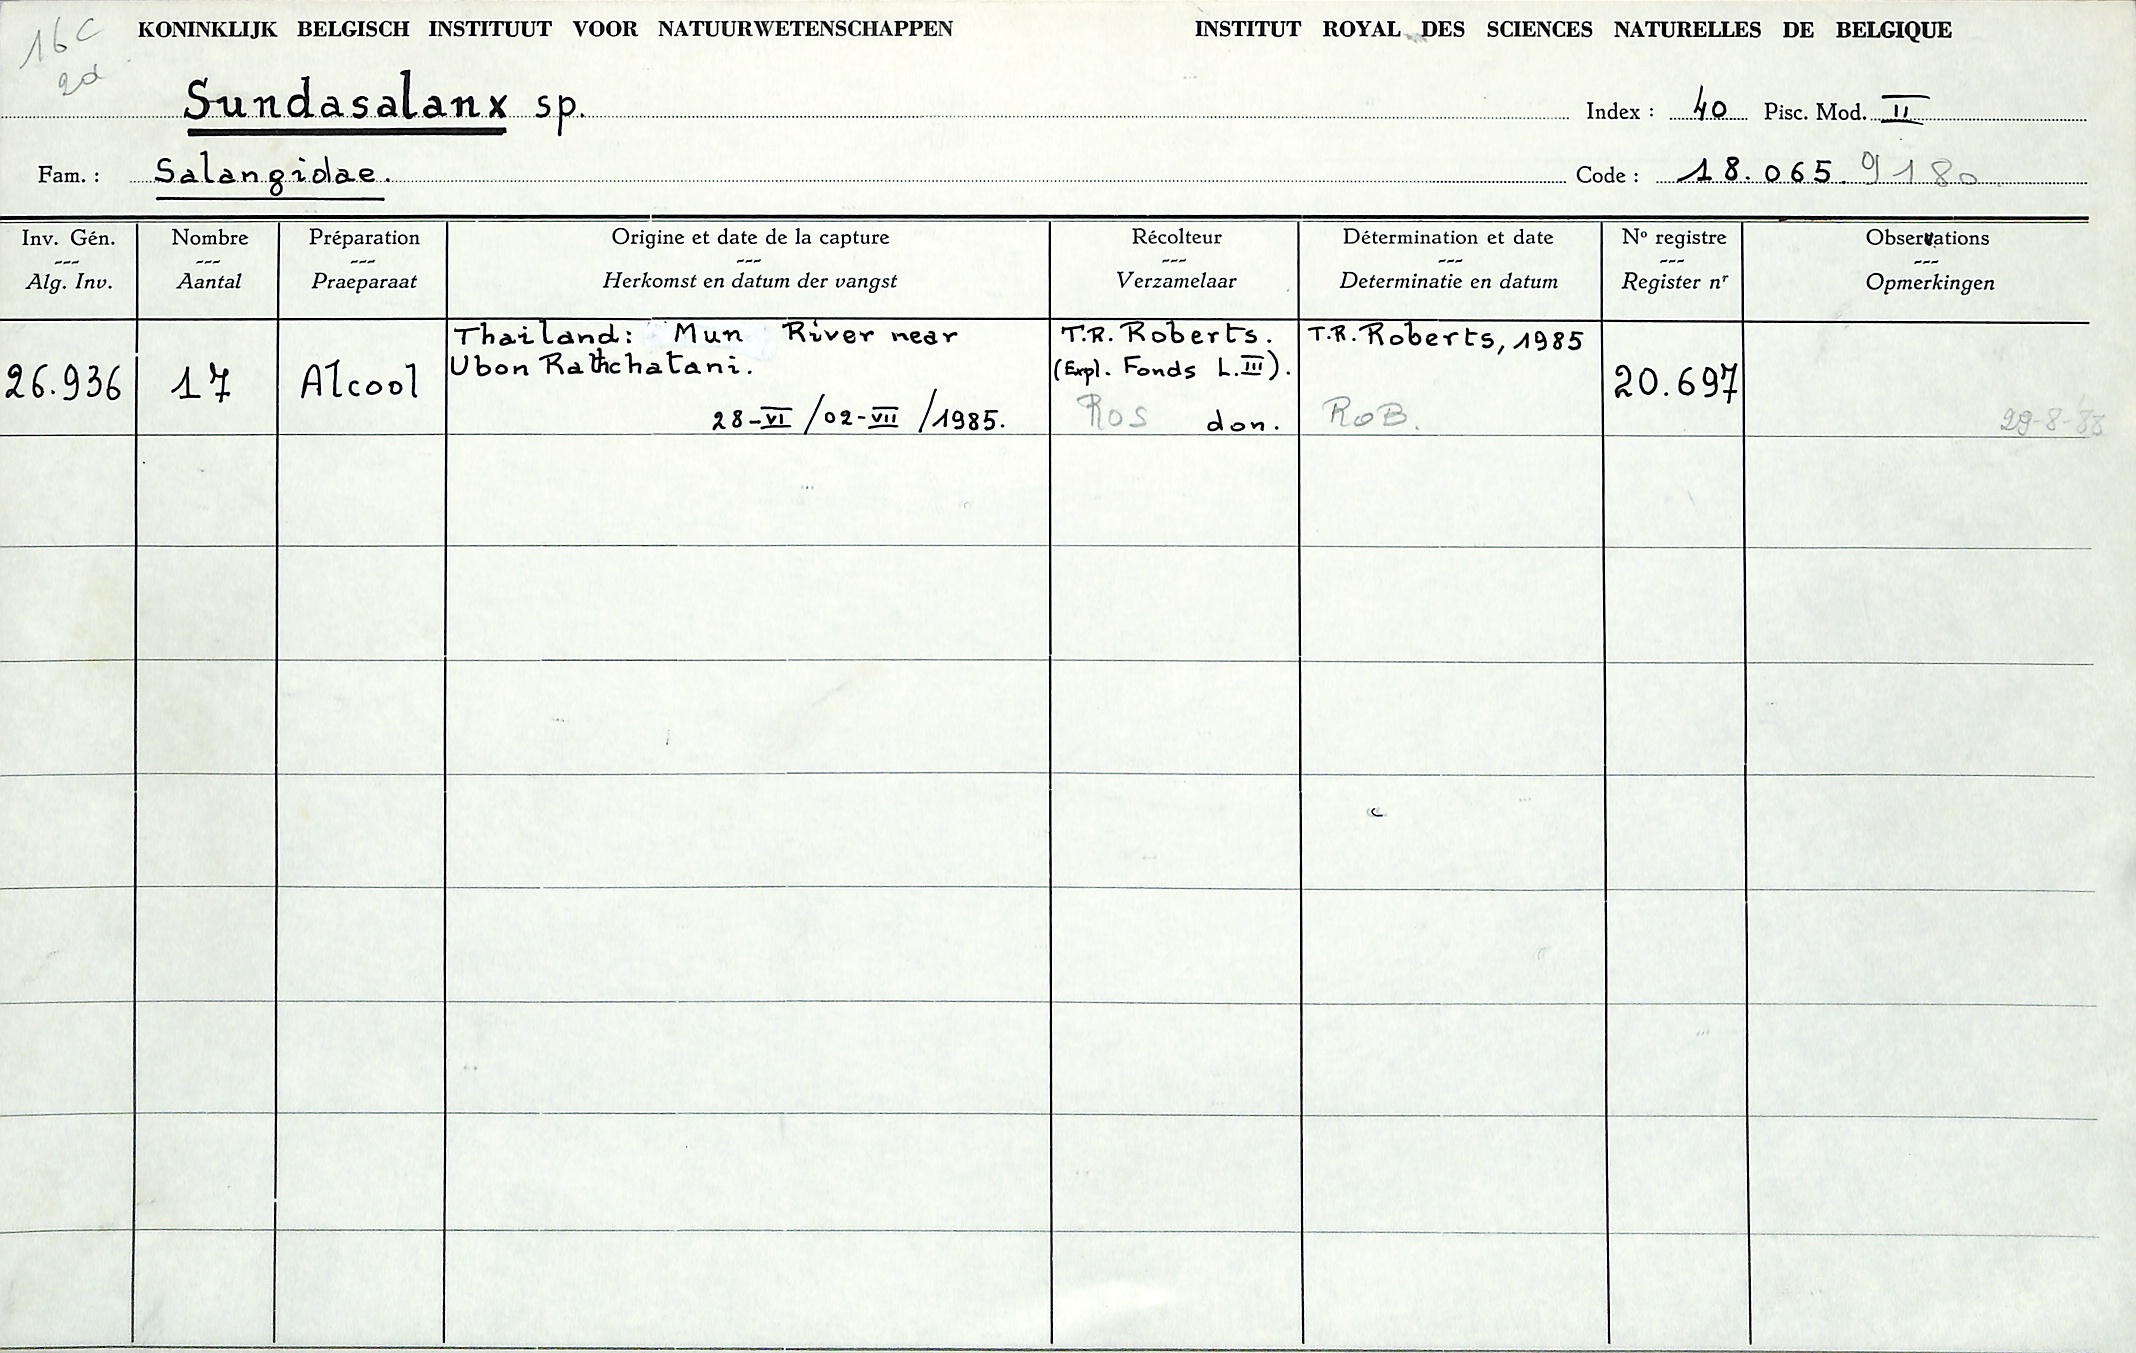 16C
2d
KONINKLIJK BELGISCH INSTITUUT VOOR NATUURWETENSCHAPPEN INSTITUT ROYAL DES SCIENCES NATURELLES DE BELGIQUE
Sundasalanx sp. Index : 40 Pisc. Mod. II
Fam. : Salangidae. Code : 18.065.9180
Inv. Gén. Nombre Préparation Origine et date de la capture Récolteur Détermination et date No registre Observations
Alg. Inv. Aantal Praeparaat Herkomst en datum der vangst Verzamelaar Determinatie en datum Register nr Opmerkingen
Thailand: Mun River near T.R. Roberts. T.R. Roberts, 1985
Ubon Rathchatani. (Expl. Fonds L.III).
26.936 17 Alcool 20.697
28-VI/02-VII/1985. ROS don. ROB.